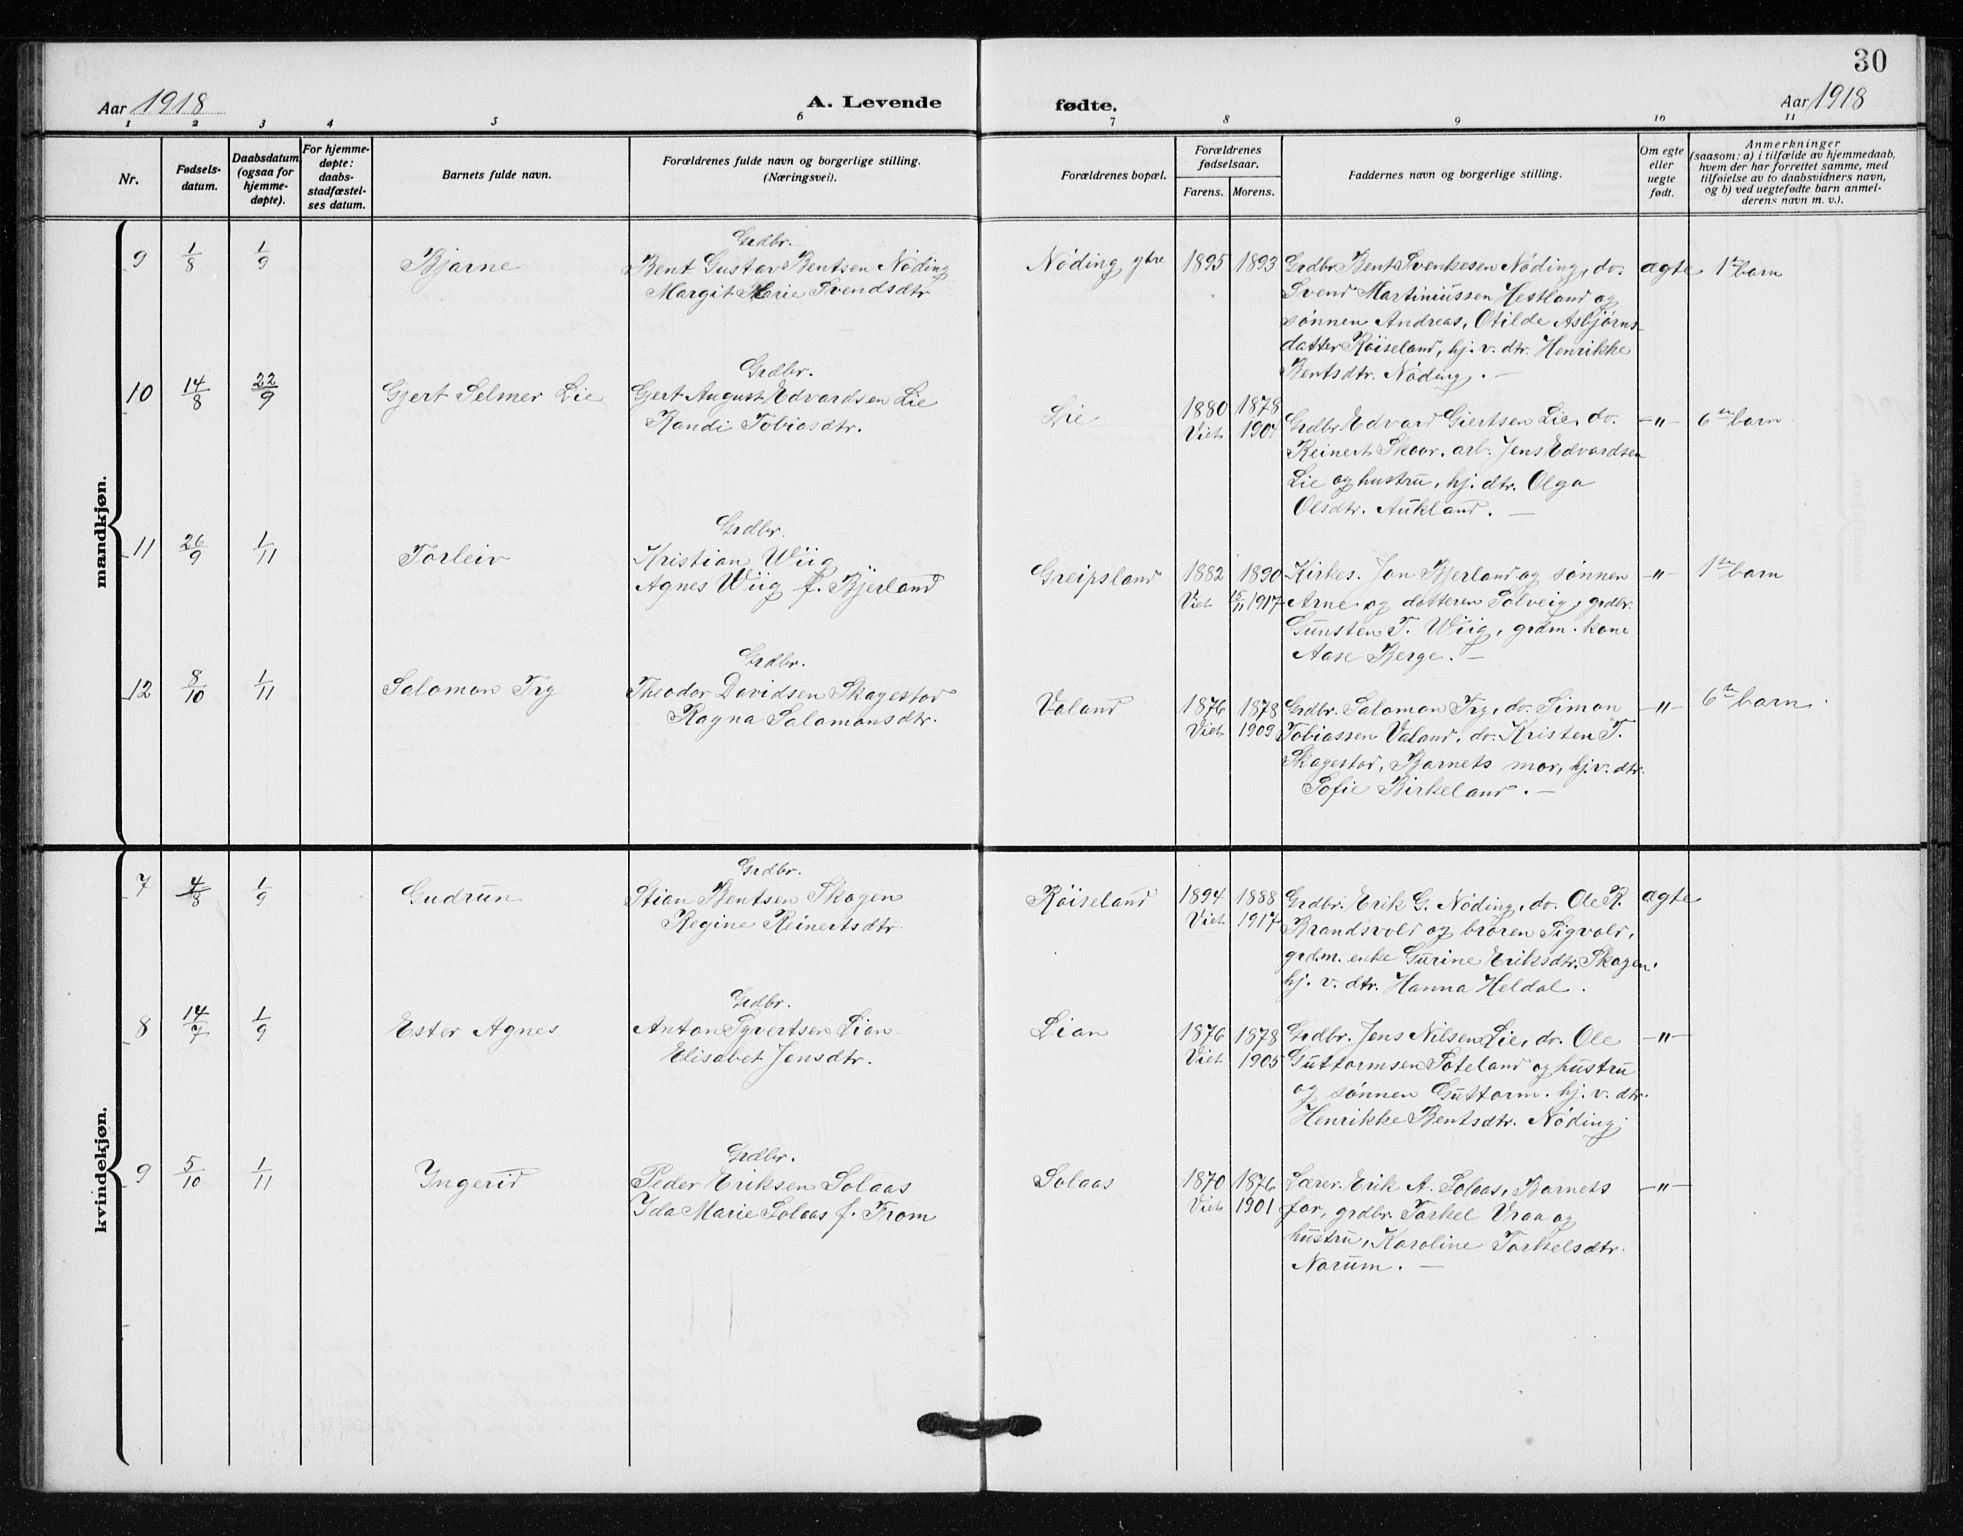 30
Aar 1918 A. Levende fødte. Aar 1918
1 2 3 4 5 6 7 8 9 10 11
Nr.
Fødsels-
datum.
Daabsdatum
(ogsaa for
hjemme-
døpte).
For hjemme-
døpte:
daabs-
stadfæstel-
ses datum.
Barnets fulde navn.
Forældrenes fulde navn og borgerlige stilling.
(Næringsvei).
Forældrenes bopæl.
Forældrenes
fødselsaar.
Farens. Morens.
Faddernes navn og borgerlige stilling.
Om egte
eller
uegte
født.
Anmerkninger
(saasom: a) i tilfælde av hjemmedaab,
hvem der har forrettet samme, med
tilføielse av to daabsvidners navn,
og b) ved uegtefødte barn anmel-
derens navn m. v.).
mandkjøn.
9 1/8 1/9 Bjarne
Grdbr.
Bent Gustav Bentsen Nöding
Margit Marie Svendsdtr
Nöding ytre 1895 1893
Grdbr. Bent Svenkesen Nöding, do.
Svend Martiniussen Hestland og
sönnen Andreas, Otilde Asbjörns-
datter Röiseland, hj. v. dtr. Henrikke
Bentsdtr. Nöding. —
ægte 1ste barn
10 14/8 22/9 Gjert Selmer Lie
Grdbr.
Gjert August Edvardsen Lie
Randi Tobiasdtr.
Lie 1880 1878
Viet 1907
Grdbr. Edvard Giertsen Lie, do.
Reinert Skaar, arb. Jens Edvardsen
Lie og hustru, hj. dtr. Olga
Olsdtr. Aukland. —
—"— 6te barn.
11 26/9 1/11 Torleiv
Grdbr.
Kristian Wiig
Agnes Wiig f. Bjerland
Greipsland 1882 1890
Viet 15/11 1917
Kirkes. Jan Bjerland og sönnen
Arne og datteren Solveig, grdbr.
Gunsten T. Wiig, grdm. kone
Aase Berge. —
—"— 1ste barn
12 8/10 1/11 Salamon Try
Grdbr.
Theodor Davidsen Skagestad
Ragna Salamonsdtr.
Valand 1876 1878
Viet 1909
Grdbr. Salamon Try, do. Simon
Tobiassen Valand, do. Kristen T.
Skagestad, Barnets mor, hj. v. dtr.
Sofie Birkeland. —
—"— 6te barn.
kvindekjøn.
7 4/8 1/9 Gudrun
Grdbr.
Stian Bentsen Skagen
Regine Reinertsdtr.
Röiseland 1894 1888
Viet 1917
Grdbr. Erik G. Nöding, do. Ole R.
Brandsvold og broren Sigvald,
grdm. enke Gurine Eriksdtr. Skagen.
hj. v. dtr. Hanna Heldal.
ægte
8 14/7 1/9 Ester Agnes
Grdbr.
Anton Syvertsen Lian
Elisabet Jensdtr.
Lian 1876 1878
Viet 1905
Grdbr. Jens Nilsen Lie, do. Ole
Guttormsen Foteland og hustru
og sönnen Guttorm. hj. v. dtr.
Henrikke Bentsdtr. Nöding.
—"—
9 5/10 1/11 Ingerid
Grdbr.
Peder Eriksen Solaas
Ida Marie Solaas f. From
Solaas 1870 1876
Viet 1901
Lærer Erik A. Solaas, Barnets
far, grdbr. Torkel Vraa og
hustru, Karoline Torkelsdtr.
Norum. —
—"—